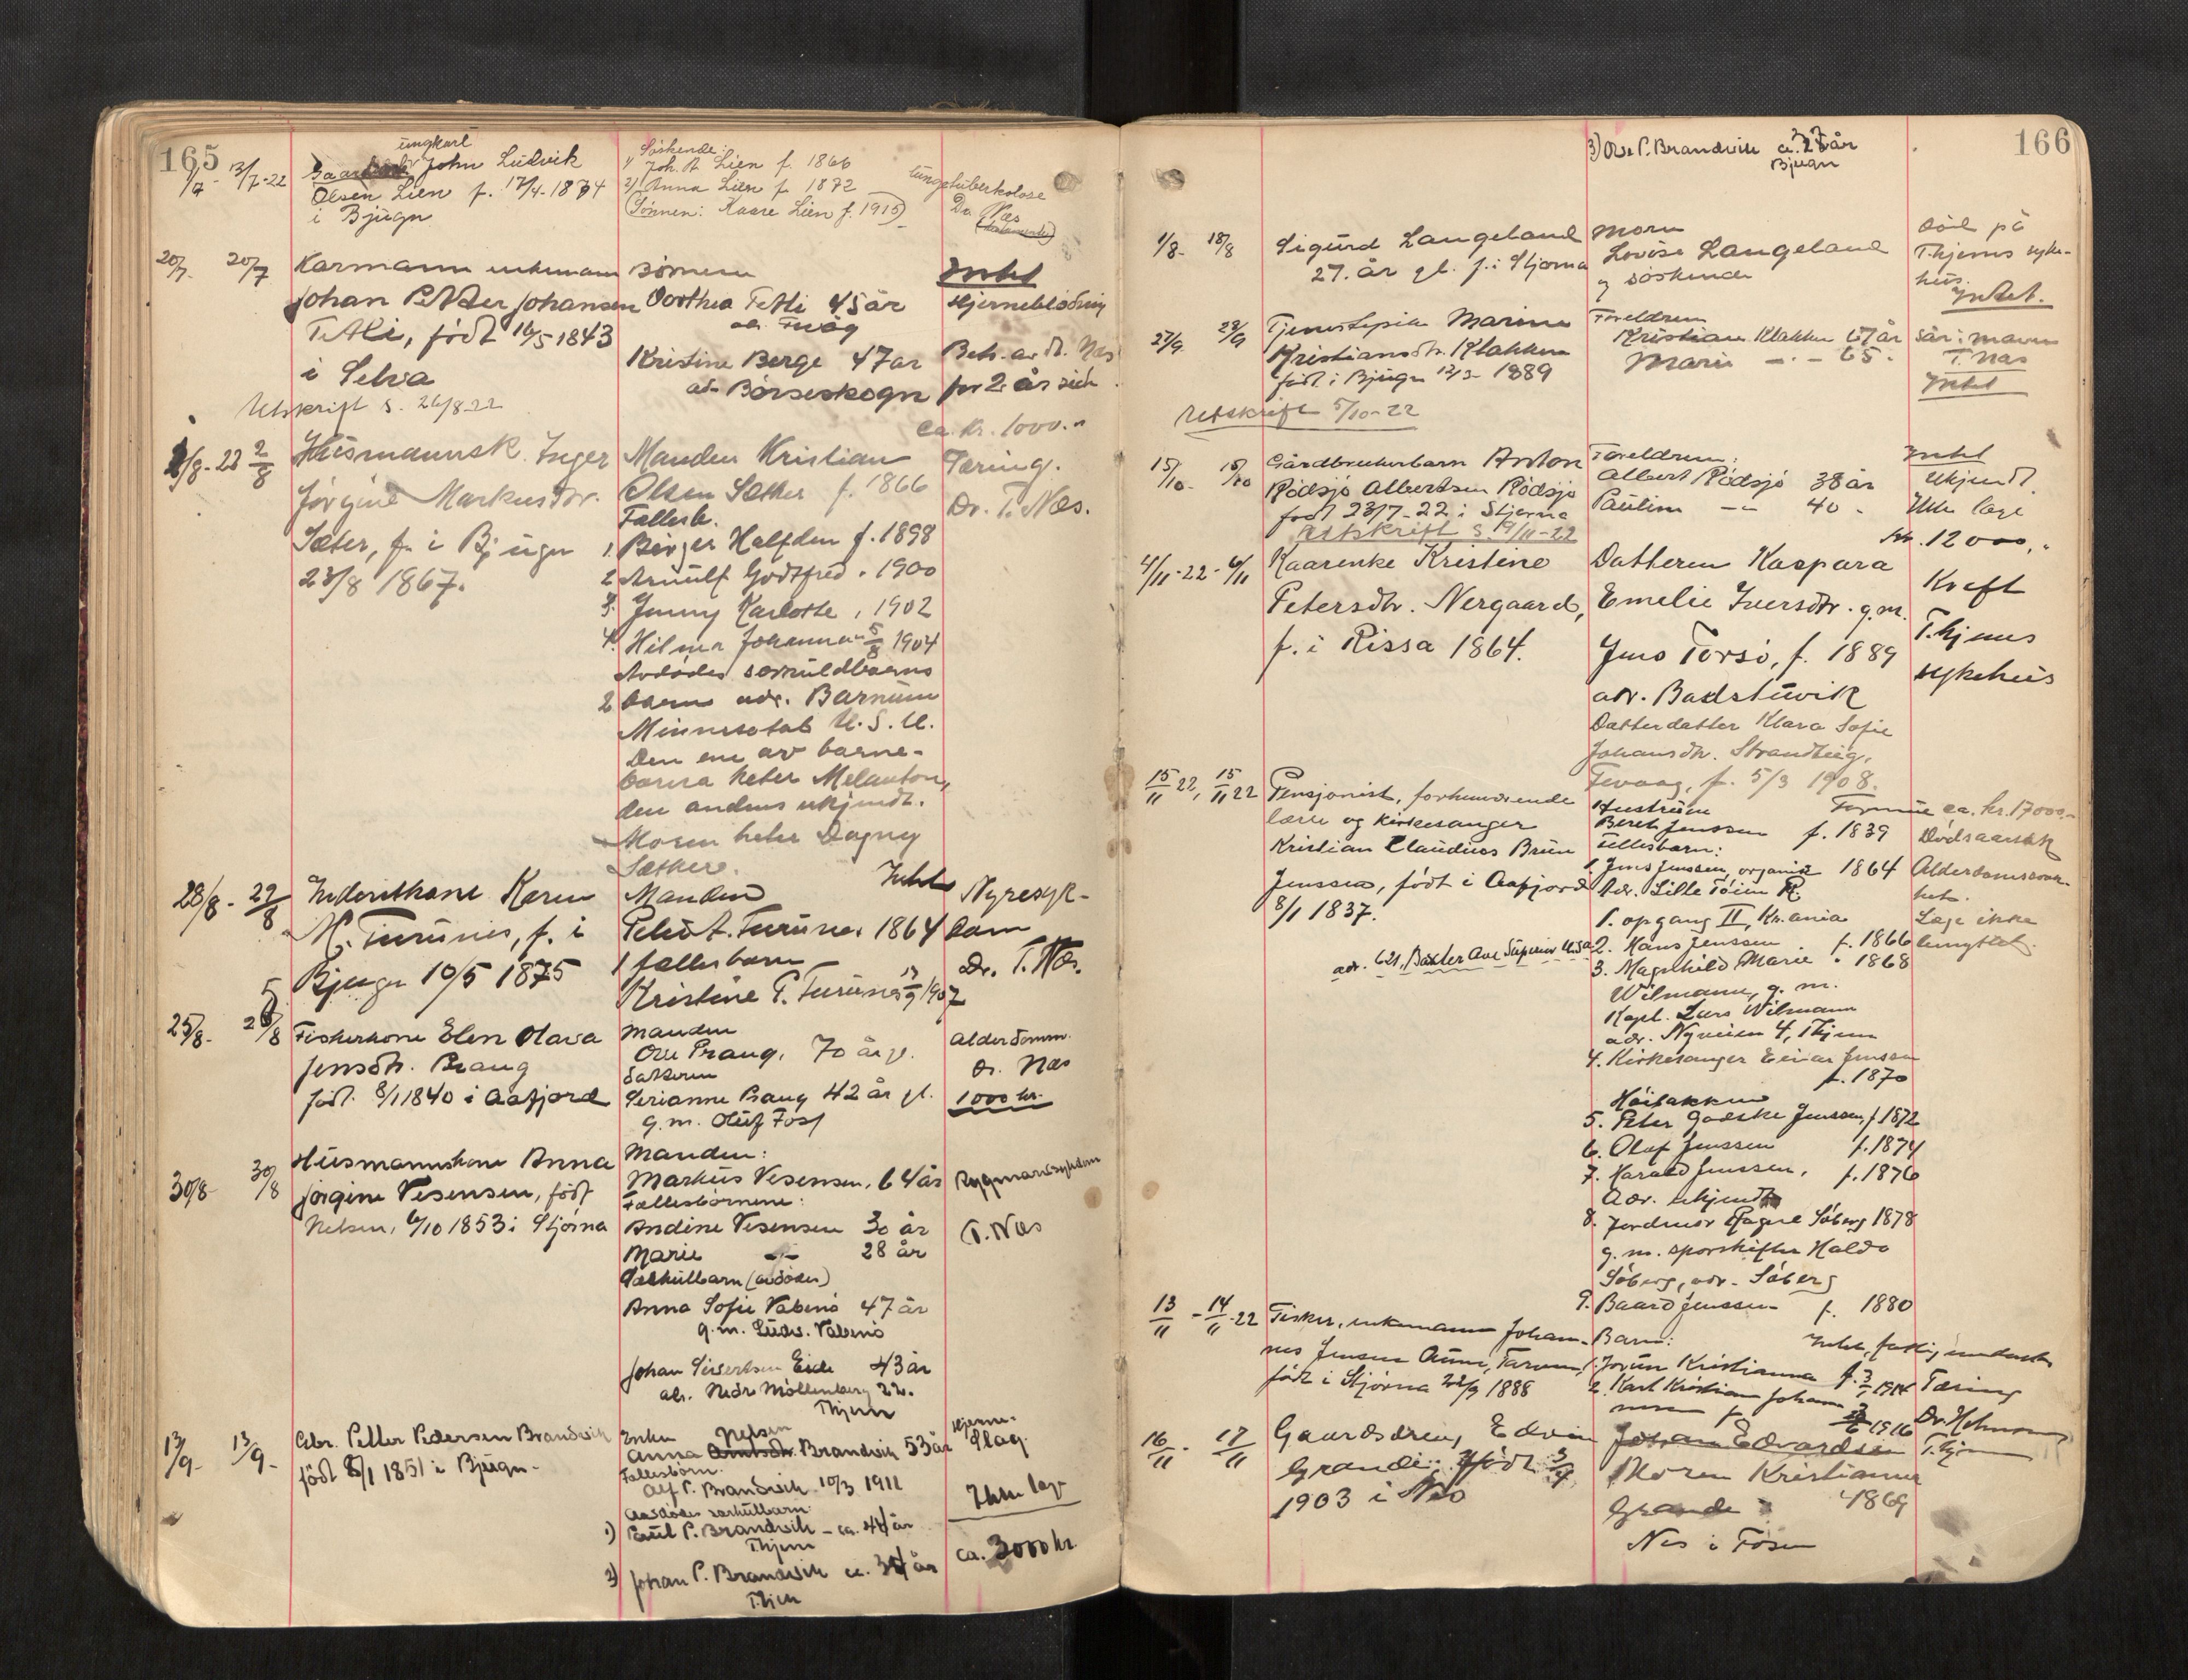 165
1/7 - 13/7-22
ungkarl
John Ludvik
Olsen Lien f. 17/4-1874
i Bjugn
Søskende:
1) Joh. A. Lien f. 1866
2) Anna Lien f. 1872
(Sønnen: Kaare Lien f. 1915)
lungetuberkolose
Dr. Næs
20/7. 20/7
Kaarmann enkemann
Johan Petter Johansen
født 10/5 1843
i Selva
Utskrift s. 26/8 22
Børnene
Dorthea 45 år
adr.
Kristine Berge 47 år
adr. Børseskogn
Intet
Hjerneblødning
Beh. av dr. Næs
for 2 år siden
ca. kr. 1000.-
2/8-22 2/8
Husmannsk. Inger
Jørgine Markusdr.
Sæter, f. i Bjugn
23/8 1867.
Manden Kristian
Olsen Sæther f. 1866
Fællesb.
1. Birger Halfdan f. 1898
2. Arnulf Godtfred " 1900
3. Jenny Karlotte, 1902
4. Hilmar Johannes 5/8 1904
Avdødes særkuldbarns
2 barn adr. Barnum
Minnesotab U.S.A.
Den ene av barne-
barna heter Melanton,
den andens ukjendt.
Moren heter Dagny
Sæther.
Tæring.
Dr. T. Næs.
28/8 - 29/8
Inderstkone Karen
M. Turunes, f. i
Bjugn 10/5 1875
Manden
Peter A. Turunes 1864
1 fællesbarn
Kristine P. Turunes 1907
Intet
Nyresyk-
dom
Dr. T. Næs.
25/8. 28/8
Fiskerkone Elen Olava
Jensdtr. Braug
født. 8/1 1840 i Aafjord
Manden
Ole Praug, 70 år gl.
Datteren
Serianne Praug 42 år gl.
g.m. Oluf Foss
Alderdomm.
Dr. Næs
1000 kr.
30/8 30/8
Husmannskone Anna
Jørgine Vesensen, født
Nelsen, 6/10 1853 i Stjørna
Manden:
Markus Vesensen, 64 år
Fællesbørnene:
Andine Vesensen 30 år
Marie -"- 28 år
Særkulbarn (avdødes)
Anna Sofie Valsnö 47 år
g.m. Ludv. Valsnö
Johan Sivertsen Eide 43 år
adr. Nedre Möllenberg 22.
Thjem
Rygmarvsykdom
T. Næs
13/9. 13/9.
Arb. Petter Pedersen Brandvik
født 8/1 1851 i Bjugn -
Enken Nelsen
Anna Brandvik 53 år
Fællesbørn:
Alf P. Brandvik 10/3 1911
Avdødes særkulbarn
1) Paul P. Brandvik - ca. 44 år
Thjem
2) Johan P. Brandvik ca. 34 år
Thjem
Hjerne-
slag.
Ikke læge
ca. 3000 kr.
166
3) Ove P. Brandvik ca. 27 år
Bjugn
1/8- 18/8
Sigurd Langeland
27. år gl. f. i Stjørna
Moren
Lovise Langeland
og søskende
død på
T.hjems syke-
hus
Intet.
27/9 29/9
Tjenestepike Marine
Kristiansdtr. Klakken
født i Bjugn 12/3 - 1889
Utskrift 5/10-22
Foreldrene
Kristian Klakken 67 år
Marie - " - 65 "
Sår i maven
T. Næs
Intet
15/10. 15/10
Gårdbrukerbarn Anton
Rödsjö Albertsen Rödsjö
født 23/7-22 i Stjørna
Utskrift s 19/11-22
Foreldrene:
Albert Rödsjö 38 år
Pauline -"- 40 -
Intet
Ukjendt.
Ikke læge
4/11-22 - 6/11
Kaarenke Kristine
Petersdtr. Nergaard,
f. i Rissa 1864.
Datteren Kaspara
Emelie Iversdtr. g.m.
Jens Forsö, f. 1889
adr. Badstuvik
Datterdatter Klara Sofie
Johansdtr. Strandteig,
Fevaag, f. 5/3 1908.
kr. 12000,-
Kreft
T.hjems
sykehus
15/11 22, 15/11 22
Pensjonist, forhenværende
lærer og kirkesanger
Kristian Claudius Brun
Jenssen, født i Aafjord
8/1 1837.
Hustruen
Bereth Jenssen f. 1839
Fællesbarn:
1. Jens Jenssen, organist 1864
Adr. Lille Töien
1. opgang II, Kr.ania
2. Hans Jenssen f. 1866
adr. 621, Baxter Ave Superior U.S.A
3. Magnhild Marie " 1868
Wilmann, g. m.
Kapt. Lars Wilmann
adr. Nyveien 4, Thjem
4. Kirkesanger Einar Jenssen
f. 1870
Höibakken
5. Peter Godske Jenssen, f. 1872
6. Olaf Jenssen f. 1874
7. Harald Jenssen, f. 1876
Adr. ukjendt
8. Jordmor Ragna Söberg 1878
g. m. sporskifter Haldo
Söberg, adr. Söberg
9. Baard Jenssen f. 1880
Formue ca. kr. 17000,-
Dødsaarsak
Alderdomssvak-
het.
Læge ikke
benyttet.
13/11 - 14/11-22
Fisker, enkemann Johan-
nes Jensen Aune,
født i Stjørna 22/9 1888
Barn:
1. Jorun Kristianna f. 3/1 1914
2. Karl Kristian Johan-
nesen f. 1916
Intet,
Tæring
Dr. Holmann
T.hjem
16/11 - 17/11
Gaardsdreng Edvin
Grande, født 3/7
1903 i Nes
Johan Edvardsen
Moren Kristianna
Grande 1869
Nes i Fosen